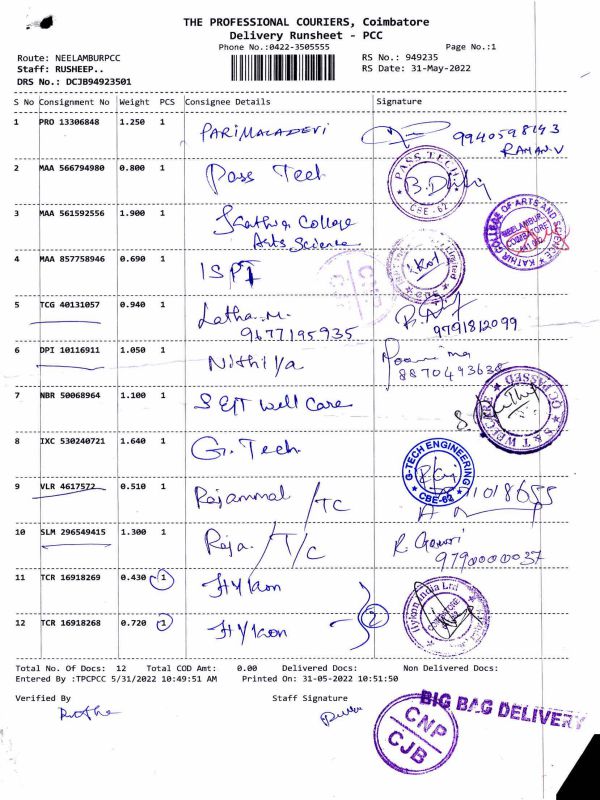 THE PROFESSIONAL COURIERS, Coimbatore
Delivery Runsheet - PCC
Phone No.:0422-3505555
Page No.:1
Route: NEELAMBURPCC
RS No.: 949235
Staff: RUSHEEP..
RS Date: 31-May-2022
DRS No.: DCJB94923501
S No Consignment No Weight PCS Consignee Details Signature
1 PRO 13306848 1.250 1 PARIMALADEVI 9940598143
RAMAN.V
2 MAA 566794980 0.800 1 Pass Tech
PASS TECH
CBE-62
3 MAA 561592556 1.900 1 Kathir College
Arts Science
KATHIR COLLEGE OF ARTS AND SCIENCE
NEELAMBUR
COIMBATORE
4 MAA 857758946 0.690 1 ISPT
5 TCG 40131057 0.940 1 Latha.M.
9677195935
9791812099
6 DPI 10116911 1.050 1 Nithiya Poornima
8870493635
7 NBR 50068964 1.100 1 S & T Well Care
S & T WELCARE
8 IXC 530240721 1.640 1 G. Tech
G-TECH ENGINEERING
CBE-62
9 VLR 4617572 0.510 1 Rajammal /TC
10 SLM 296549415 1.300 1 Raja. /T/C R. Gowri
9790000037
11 TCR 16918269 0.430 1 Hykon
2
Hykon India Ltd
12 TCR 16918268 0.720 1 Hykon
Total No. Of Docs: 12 Total COD Amt: 0.00 Delivered Docs: Non Delivered Docs:
Entered By :TPCPCC 5/31/2022 10:49:51 AM Printed On: 31-05-2022 10:51:50
Verified By Staff Signature
BIG BAG DELIVERY
CNP
CJB